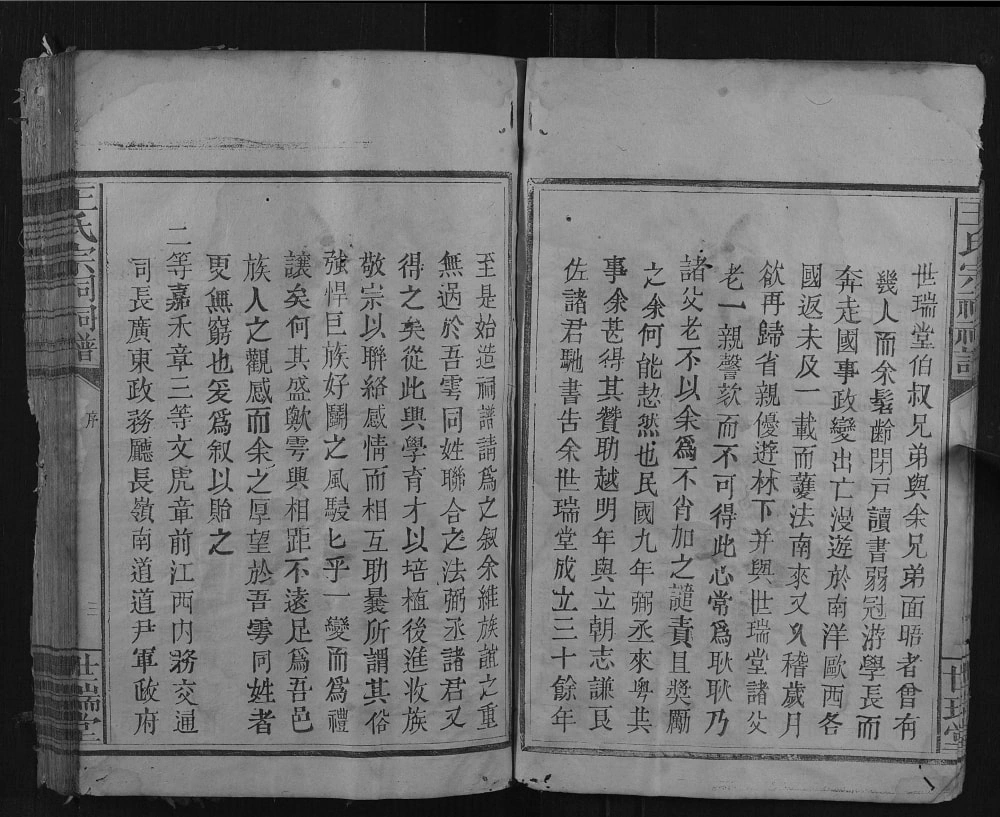 世瑞堂伯叔兄弟與余兄弟面晤者曾有
幾人而余髫齡閉戸讀書弱冠游學長而
奔走國事政變出亡漫遊於南洋歐西各
國返未及一載而護法南來又久稽歲月
欲再歸省親優遊林下并與世瑞堂諸父
老一親謦欬而不可得此心常爲耿耿乃
諸父老不以余爲不肖加之譴責且奬勵
之余何能恝然也民國九年弼丞來粵共
事余甚得其贊助越明年與立朝志謙艮
佐諸君馳書告余世瑞堂成立三十餘年
至是始造祠譜請爲之叙余維族誼之重
無過於吾雩同姓聯合之法弼丞諸君又
得之矣從此興學育才以培植後進收族
敬宗以聯絡感情而相互助曩所謂其俗
強悍巨族好鬭之風駸匕乎一變而爲禮
讓矣何其盛歟雩興相距不遠足爲吾邑
族人之觀感而余之厚望於吾雩同姓者
更無窮也爰爲叙以貽之
二等嘉禾章三等文虎章前江西內務交通
司長廣東政務廳長嶺南道道尹軍政府
王氏宗祠祠譜
序
三
世瑞堂
王氏宗祠祠譜
世瑞堂